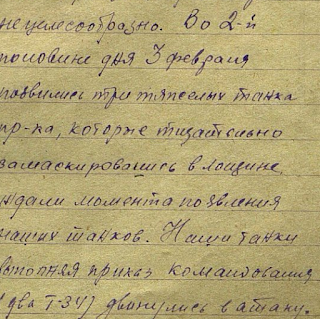 нецелесообразно. Во 2-й
половине дня 3 февраля
появились три тяжелых танка
пр-ка, которые тщательно
замаскировались в лощине,
ждали момента появления
наших танков. Наши танки
выполняя приказ командования
(два Т-34) двинулись в атаку.